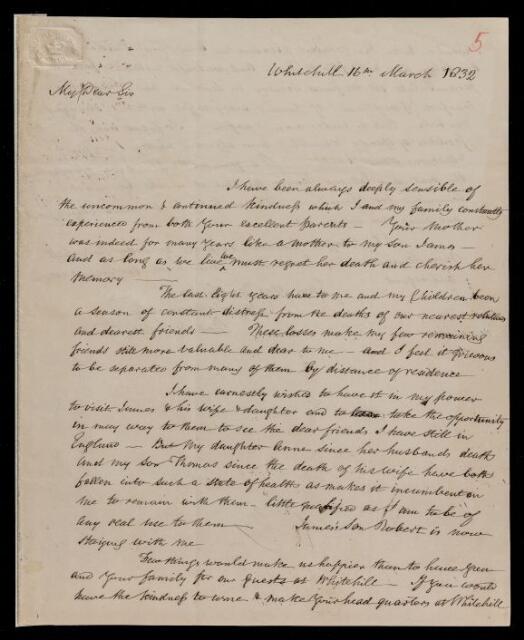 5
Whitehill 16th March 1832
My Dear Sir
I have been always deeply sensible of
the uncommon & continued kindness which I and my family constantly
experienced from both Your excellent Parents — Your Mother
was indeed for many Years like a mother to my Son James —
And as long as we live we must regret her death and cherish her
Memory —
The last Eight years have to me and my Children been
a season of constant distress from the deaths of our nearest relations
and dearest friends — These losses make my few remaining
friends still more valuable and dear to me — and I feel it grievous
to be separated from many of them by distance of residence
I have earnestly wished to have it in my power
to visit James & his wife & daughter and to take the opportunity
in my way to them to see the dear friends I have still in
England — But My daughter Anne since her husbands death
and my Son Thomas since the death of his wife have both
fallen into such a state of health as makes it incumbent on
me to remain with them — little qualified as I am to be of
any real use to them — James's Son Robert is now
staying with me
Few things would make us happier than to have You
and Your family for our guests at Whitehill — If You would
have the kindness to come & make Your head quarters at Whitehill